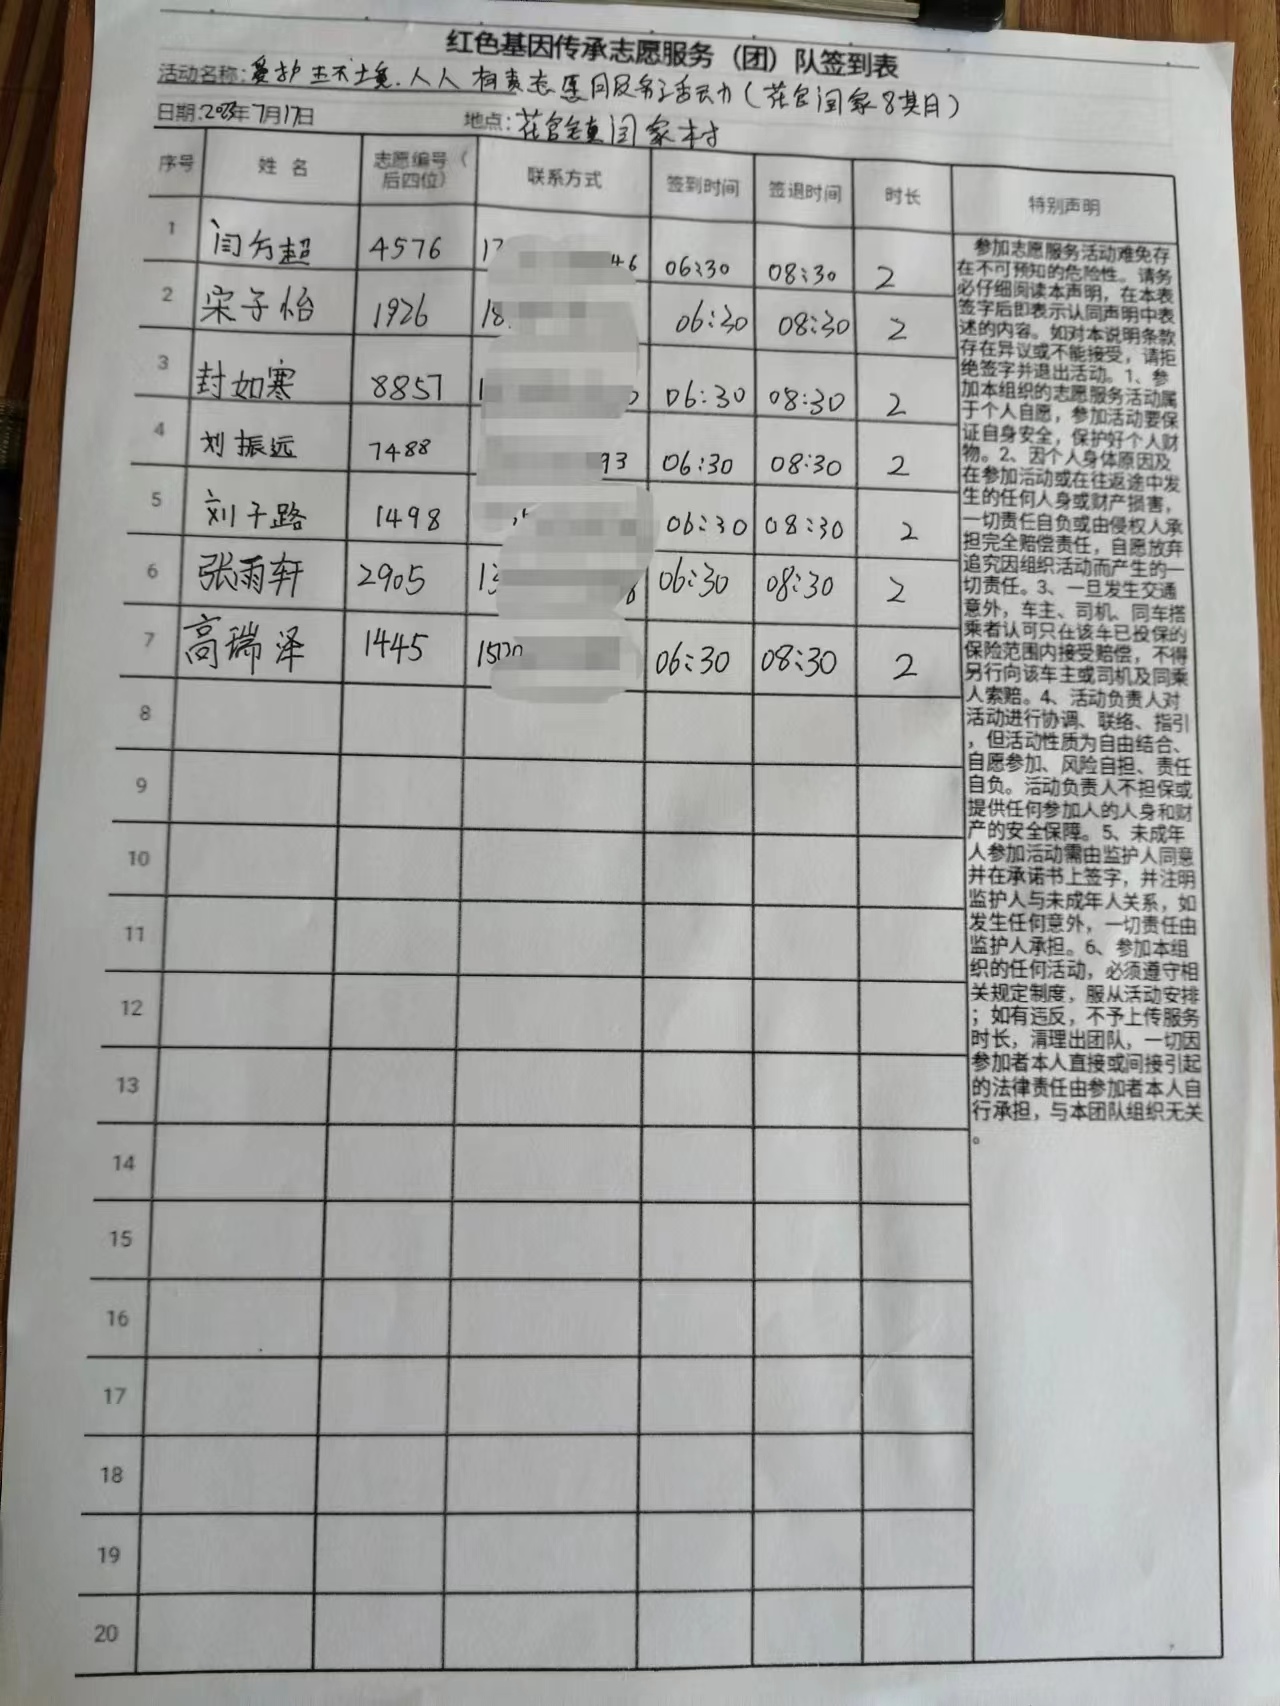 红色基因传承志愿服务（团）队签到表
活动名称：爱护环境，人人有责志愿服务活动（花官闫家8期）
日期：2023年7月17日 地点：花官镇闫家村
序号 姓名 志愿编号（后四位） 联系方式 签到时间 签退时间 时长 特别声明
1 闫方超 4576 17 46 06:30 08:30 2
2 宋子怡 1926 18 06:30 08:30 2
3 封如寒 8857 1 06:30 08:30 2
4 刘振远 7488 93 06:30 08:30 2
5 刘子路 1498 06:30 08:30 2
6 张雨轩 2905 13 06:30 08:30 2
7 高瑞泽 1445 06:30 08:30 2
8
9
10
11
12
13
14
15
16
17
18
19
20
参加志愿服务活动难免存
在不可预知的危险性。请务
必仔细阅读本声明，在本表
签字后即表示认同声明中表
述的内容。如对本说明条款
存在异议或不能接受，请拒
绝签字并退出活动。1、参
加本组织的志愿服务活动属
于个人自愿，参加活动要保
证自身安全，保护好个人财
物。2、因个人身体原因及
在参加活动或在往返途中发
生的任何人身或财产损害，
一切责任自负或由侵权人承
担完全赔偿责任，自愿放弃
追究因组织活动而产生的一
切责任。3、一旦发生交通
意外，车主、司机、同车搭
乘者认可只在该车已投保的
保险范围内接受赔偿，不得
另行向该车主或司机及同乘
人索赔。4、活动负责人对
活动进行协调、联络、指引
，但活动性质为自由结合、
自愿参加、风险自担、责任
自负。活动负责人不担保或
提供任何参加人的人身和财
产的安全保障。5、未成年
人参加活动需由监护人同意
并在承诺书上签字，并注明
监护人与未成年人关系，如
发生任何意外，一切责任由
监护人承担。6、参加本组
织的任何活动，必须遵守相
关规定制度，服从活动安排
；如有违反，不予上传服务
时长，清理出团队，一切因
参加者本人直接或间接引起
的法律责任由参加者本人自
行承担，与本团队组织无关
。